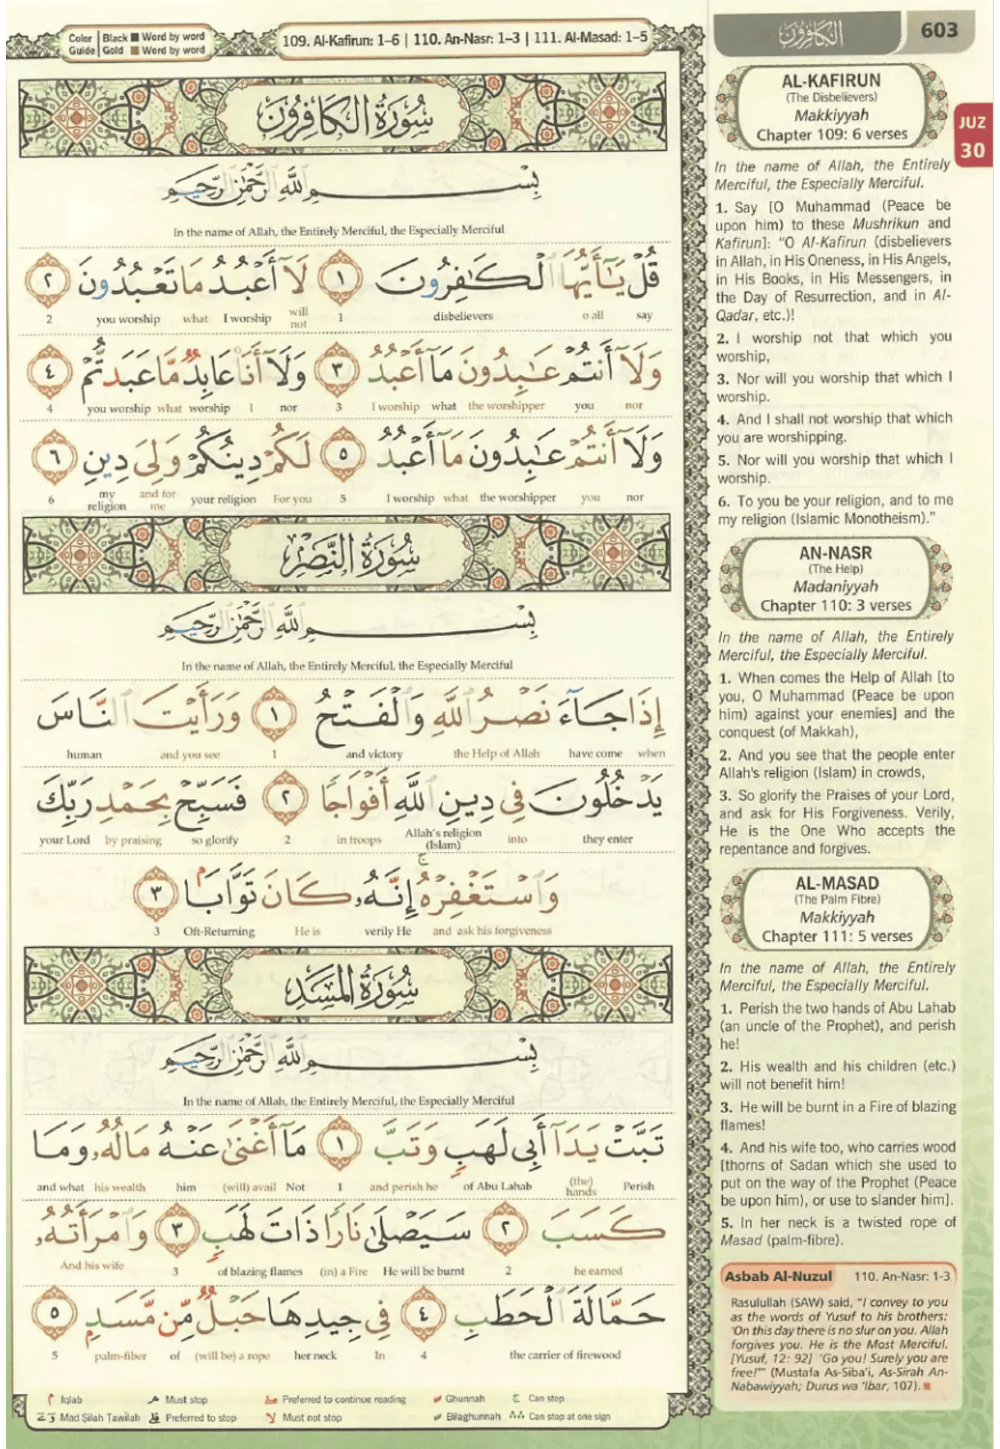 Color Guide | Black ■ Word by word | Gold ■ Word by word
109. Al-Kafirun: 1–6 | 110. An-Nasr: 1–3 | 111. Al-Masad: 1–5
سُورَةُ الكَافِرُونَ
بِسْمِ اللَّهِ الرَّحْمَٰنِ الرَّحِيمِ
In the name of Allah, the Entirely Merciful, the Especially Merciful
قُلْ يَٰٓأَيُّهَا ٱلْكَٰفِرُونَ ١ لَآ أَعْبُدُ مَا تَعْبُدُونَ ٢
say o all disbelievers 1 will not I worship what you worship 2
وَلَآ أَنتُمْ عَٰبِدُونَ مَآ أَعْبُدُ ٣ وَلَآ أَنَا۠ عَابِدٌ مَّا عَبَدتُّمْ ٤
nor you the worshipper what I worship 3 nor I worship what you worship 4
وَلَآ أَنتُمْ عَٰبِدُونَ مَآ أَعْبُدُ ٥ لَكُمْ دِينُكُمْ وَلِىَ دِينِ ٦
nor you the worshipper what I worship 5 For you your religion and for me my religion 6
سُورَةُ النَّصْرِ
بِسْمِ اللَّهِ الرَّحْمَٰنِ الرَّحِيمِ
In the name of Allah, the Entirely Merciful, the Especially Merciful
إِذَا جَآءَ نَصْرُ ٱللَّهِ وَٱلْفَتْحُ ١ وَرَأَيْتَ ٱلنَّاسَ
when have come the Help of Allah and victory 1 and you see human
يَدْخُلُونَ فِى دِينِ ٱللَّهِ أَفْوَاجًا ٢ فَسَبِّحْ بِحَمْدِ رَبِّكَ
they enter into Allah's religion (Islam) in troops 2 so glorify by praising your Lord
وَٱسْتَغْفِرْهُ ۚ إِنَّهُۥ كَانَ تَوَّابًۢا ٣
and ask his forgiveness verily He He is Oft-Returning 3
سُورَةُ المَسَدِ
بِسْمِ اللَّهِ الرَّحْمَٰنِ الرَّحِيمِ
In the name of Allah, the Entirely Merciful, the Especially Merciful
تَبَّتْ يَدَآ أَبِى لَهَبٍ وَتَبَّ ١ مَآ أَغْنَىٰ عَنْهُ مَالُهُۥ وَمَا
Perish (the) hands of Abu Lahab and perish he 1 Not (will) avail him his wealth and what
كَسَبَ ٢ سَيَصْلَىٰ نَارًا ذَاتَ لَهَبٍ ٣ وَٱمْرَأَتُهُۥ
he earned 2 He will be burnt (in) a Fire of blazing flames 3 And his wife
حَمَّالَةَ ٱلْحَطَبِ ٤ فِى جِيدِهَا حَبْلٌ مِّن مَّسَدٍۭ ٥
the carrier of firewood 4 In her neck (will be) a rope of palm-fiber 5
Iqlab Must stop Preferred to continue reading Ghunnah Can stop
Mad Silah Tawilah Preferred to stop Must not stop Bilaghunnah Can stop at one sign
الكَافِرُونَ
603
JUZ
30
AL-KAFIRUN
(The Disbelievers)
Makkiyyah
Chapter 109: 6 verses
In the name of Allah, the Entirely
Merciful, the Especially Merciful.
1. Say [O Muhammad (Peace be
upon him) to these Mushrikun and
Kafirun]: "O Al-Kafirun (disbelievers
in Allah, in His Oneness, in His Angels,
in His Books, in His Messengers, in
the Day of Resurrection, and in Al-
Qadar, etc.)!
2. I worship not that which you
worship,
3. Nor will you worship that which I
worship.
4. And I shall not worship that which
you are worshipping.
5. Nor will you worship that which I
worship.
6. To you be your religion, and to me
my religion (Islamic Monotheism)."
AN-NASR
(The Help)
Madaniyyah
Chapter 110: 3 verses
In the name of Allah, the Entirely
Merciful, the Especially Merciful.
1. When comes the Help of Allah [to
you, O Muhammad (Peace be upon
him) against your enemies] and the
conquest (of Makkah),
2. And you see that the people enter
Allah's religion (Islam) in crowds,
3. So glorify the Praises of your Lord,
and ask for His Forgiveness. Verily,
He is the One Who accepts the
repentance and forgives.
AL-MASAD
(The Palm Fibre)
Makkiyyah
Chapter 111: 5 verses
In the name of Allah, the Entirely
Merciful, the Especially Merciful.
1. Perish the two hands of Abu Lahab
(an uncle of the Prophet), and perish
he!
2. His wealth and his children (etc.)
will not benefit him!
3. He will be burnt in a Fire of blazing
flames!
4. And his wife too, who carries wood
[thorns of Sadan which she used to
put on the way of the Prophet (Peace
be upon him), or use to slander him].
5. In her neck is a twisted rope of
Masad (palm-fibre).
Asbab Al-Nuzul 110. An-Nasr: 1-3
Rasulullah (SAW) said, "I convey to you
as the words of Yusuf to his brothers:
'On this day there is no slur on you. Allah
forgives you. He is the Most Merciful.
[Yusuf, 12: 92] 'Go you! Surely you are
free!'" (Mustafa As-Siba'i, As-Sirah An-
Nabawiyyah; Durus wa 'Ibar, 107).